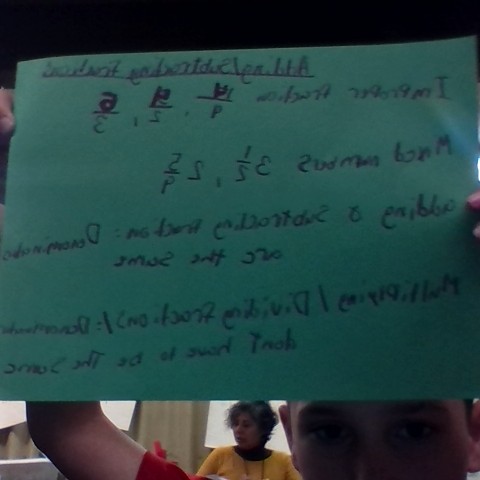 Adding/Subtracting fractions
Improper fraction 19/9, 9/2, 6/3
Mixed numbers 3 1/2, 2 5/9
adding & Subtracting fraction: Denominator
are the same
Multiplying / Dividing fractions/: Denominator
don't have to be The Same